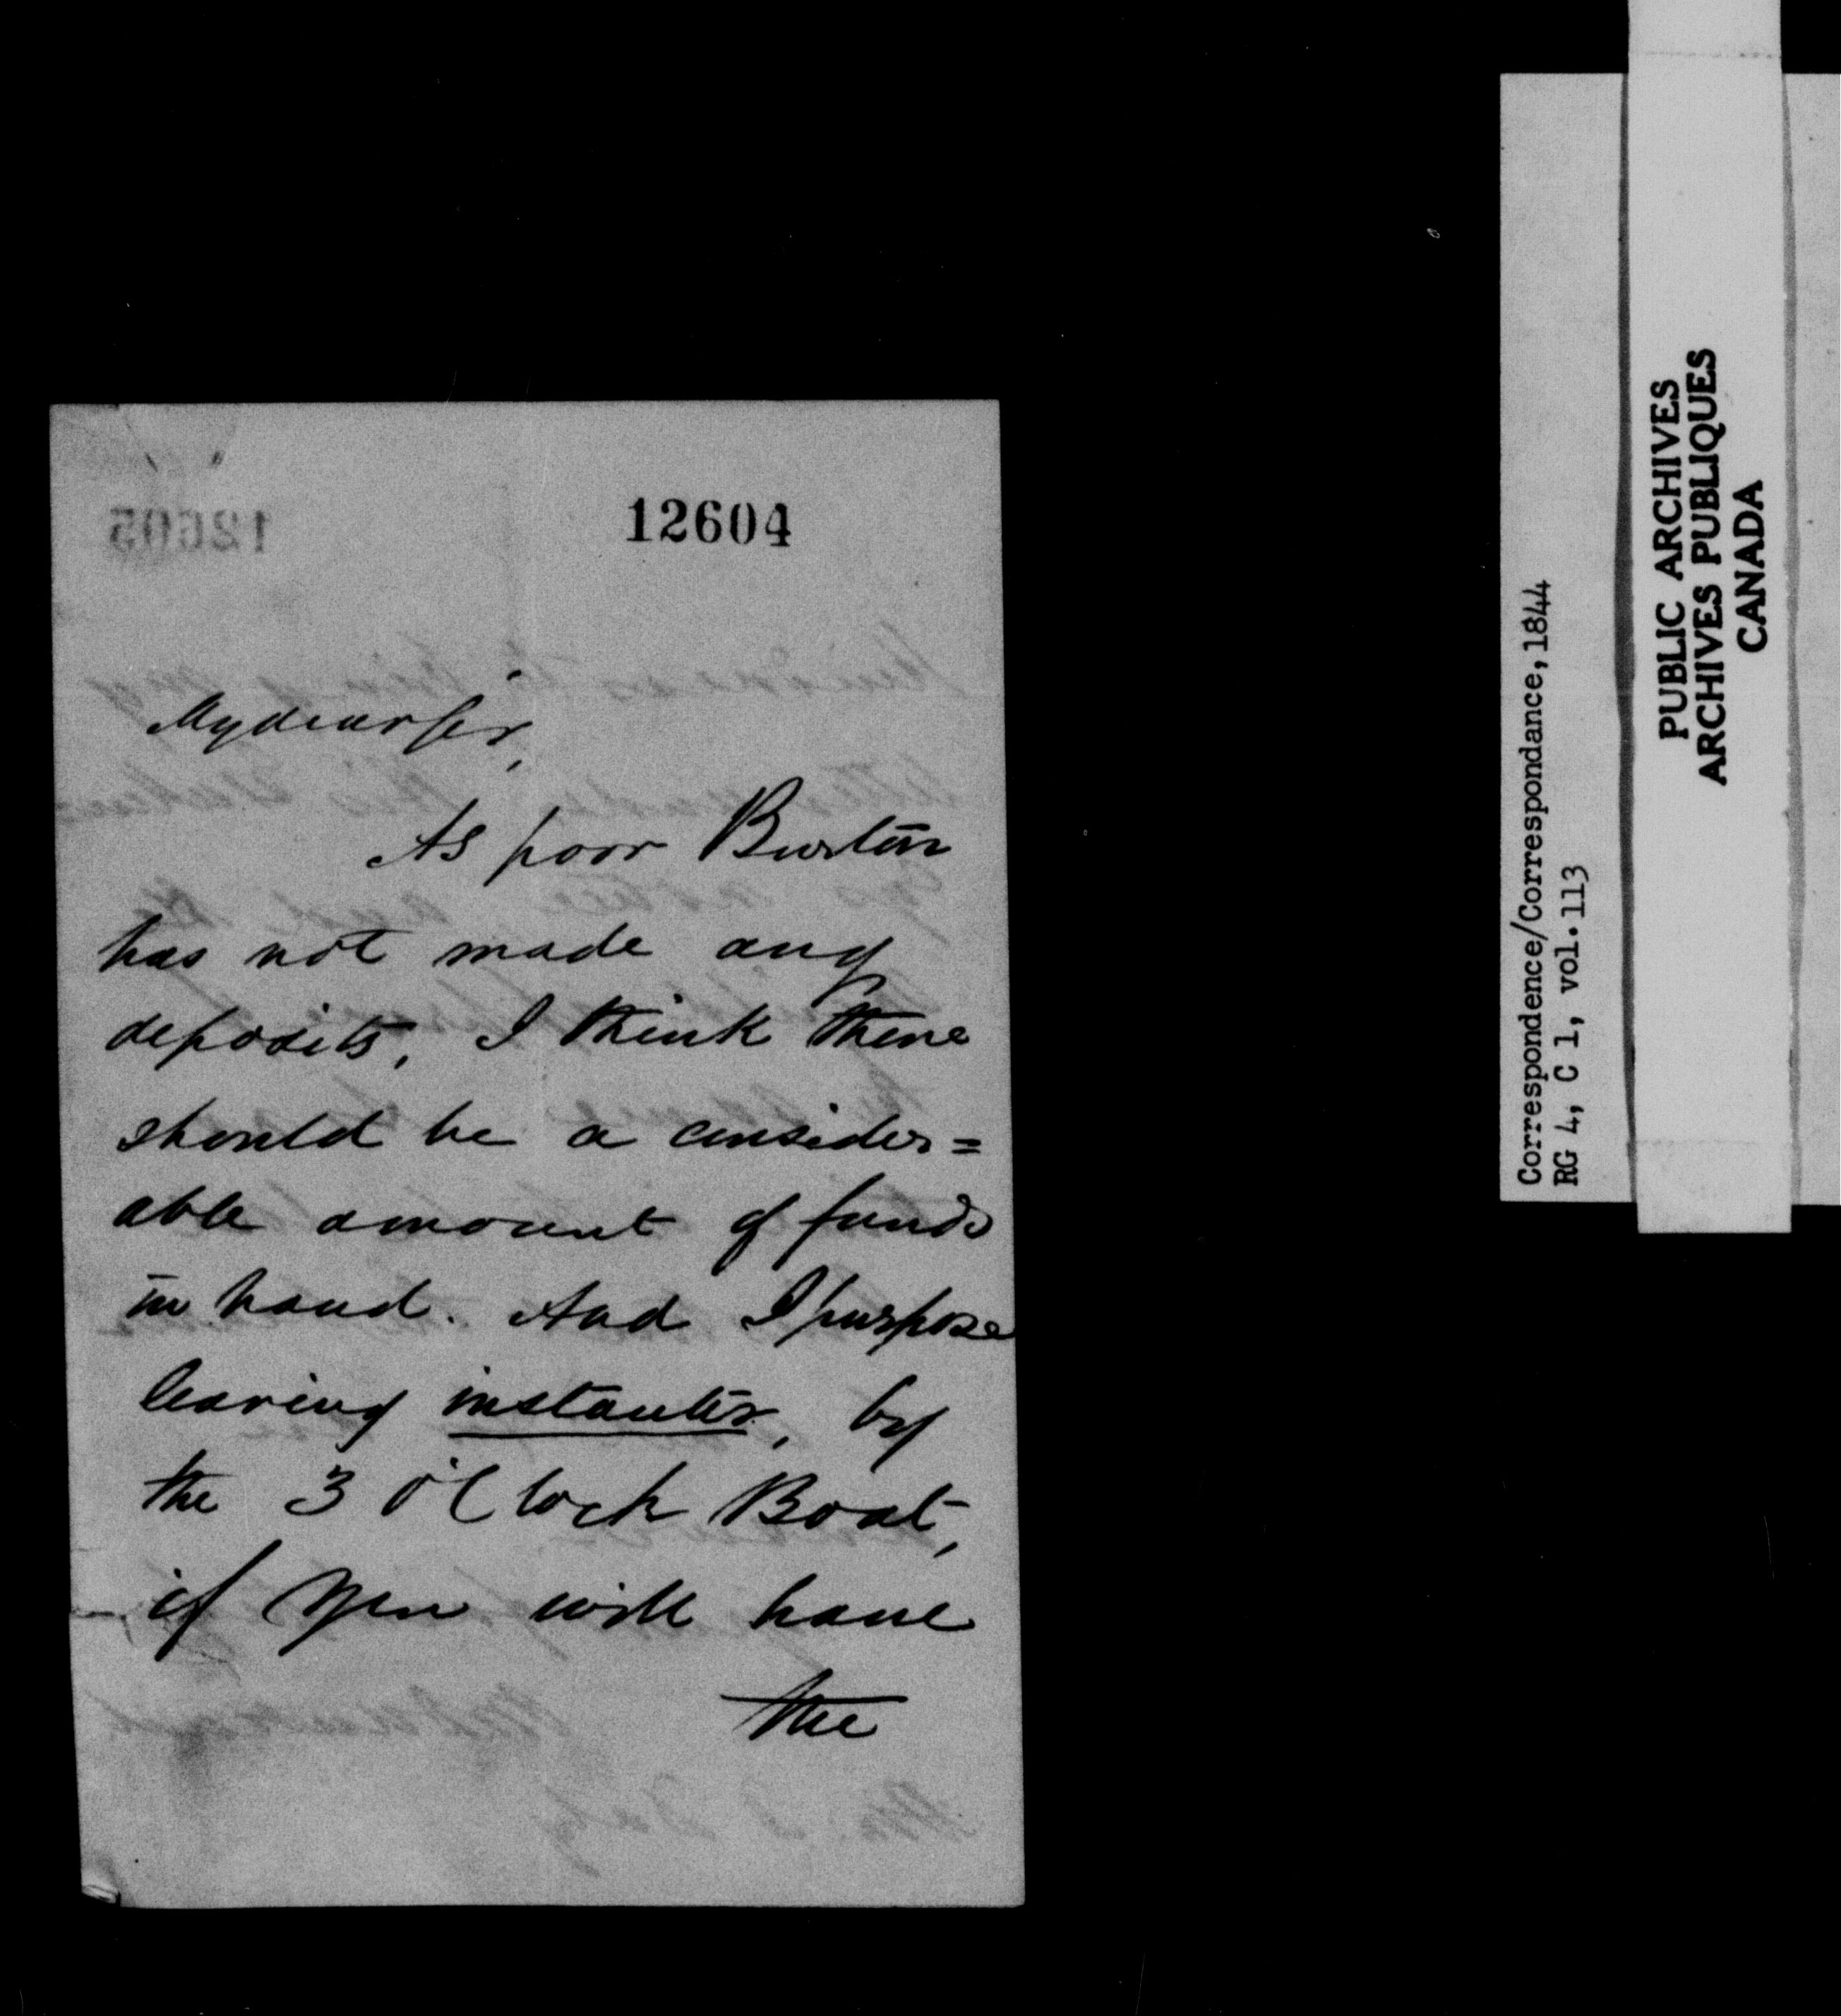 12604
My dear Sir,
As poor Burton
has not made any
deposits, I think there
should be a consider=
able amount of funds
in hand. And I purpose
leaving instanter, by
the 3 O'Clock Boat,
if you will have
the
12605
Correspondence/Correspondance, 1844
RG 4, C 1, vol. 113
PUBLIC ARCHIVES
ARCHIVES PUBLIQUES
CANADA